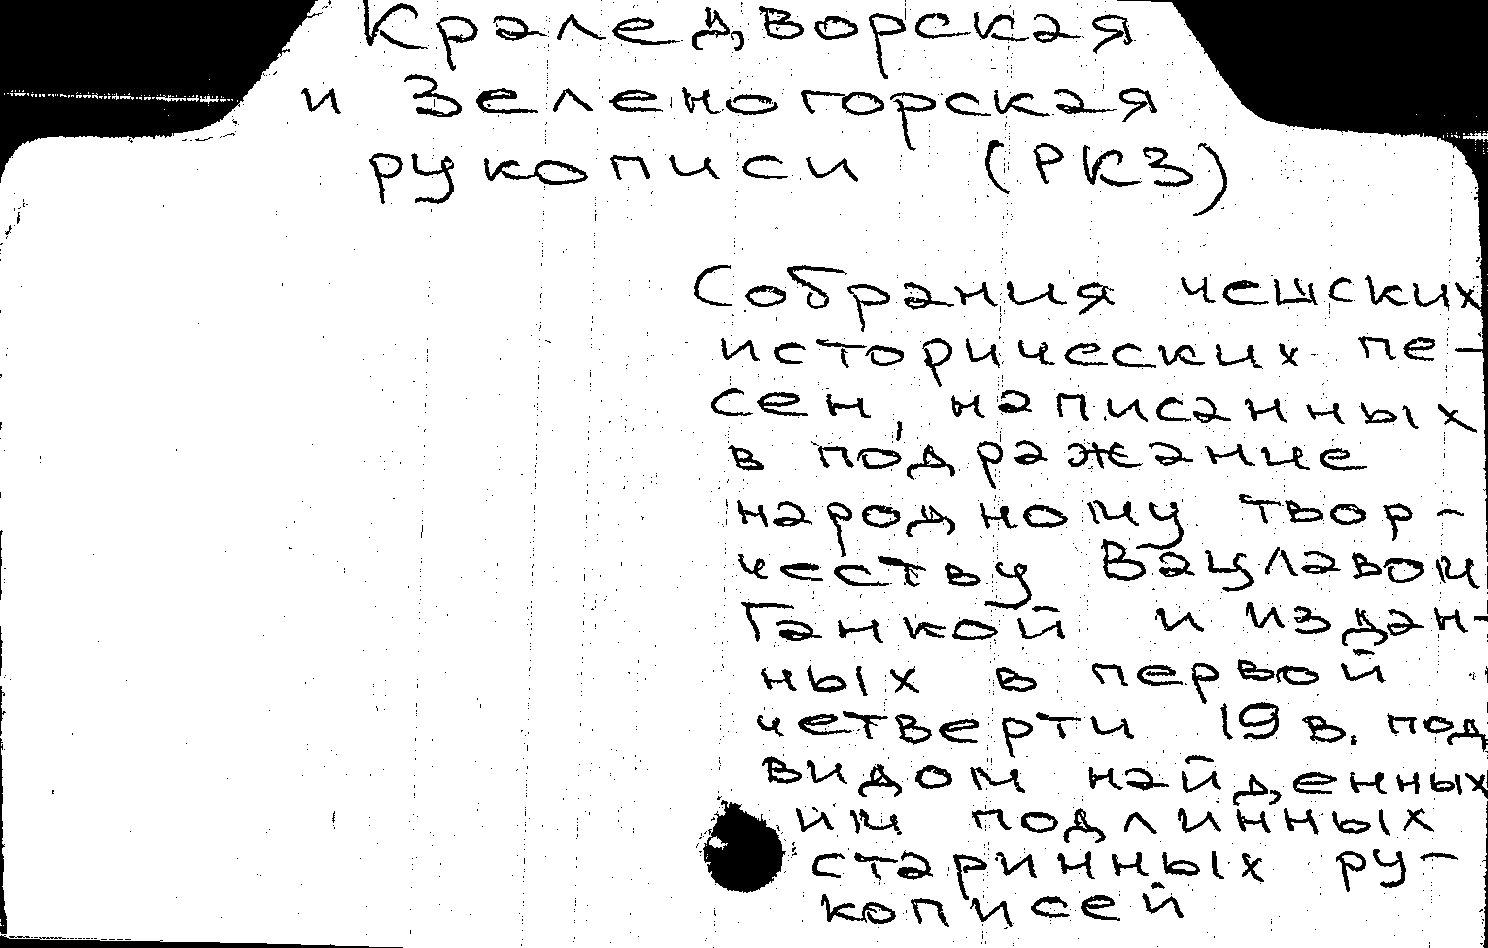 Краледворская
и Зеленогорская
рукописи (РКЗ)
Собрания чешских
исторических пе-
сен, написанных
в подражание
народному твор-
честву Вацлавом
Ганкой и издан-
ных в первой
четверти 19 в. под
видом найденных
им подлинных
старинных ру-
кописей